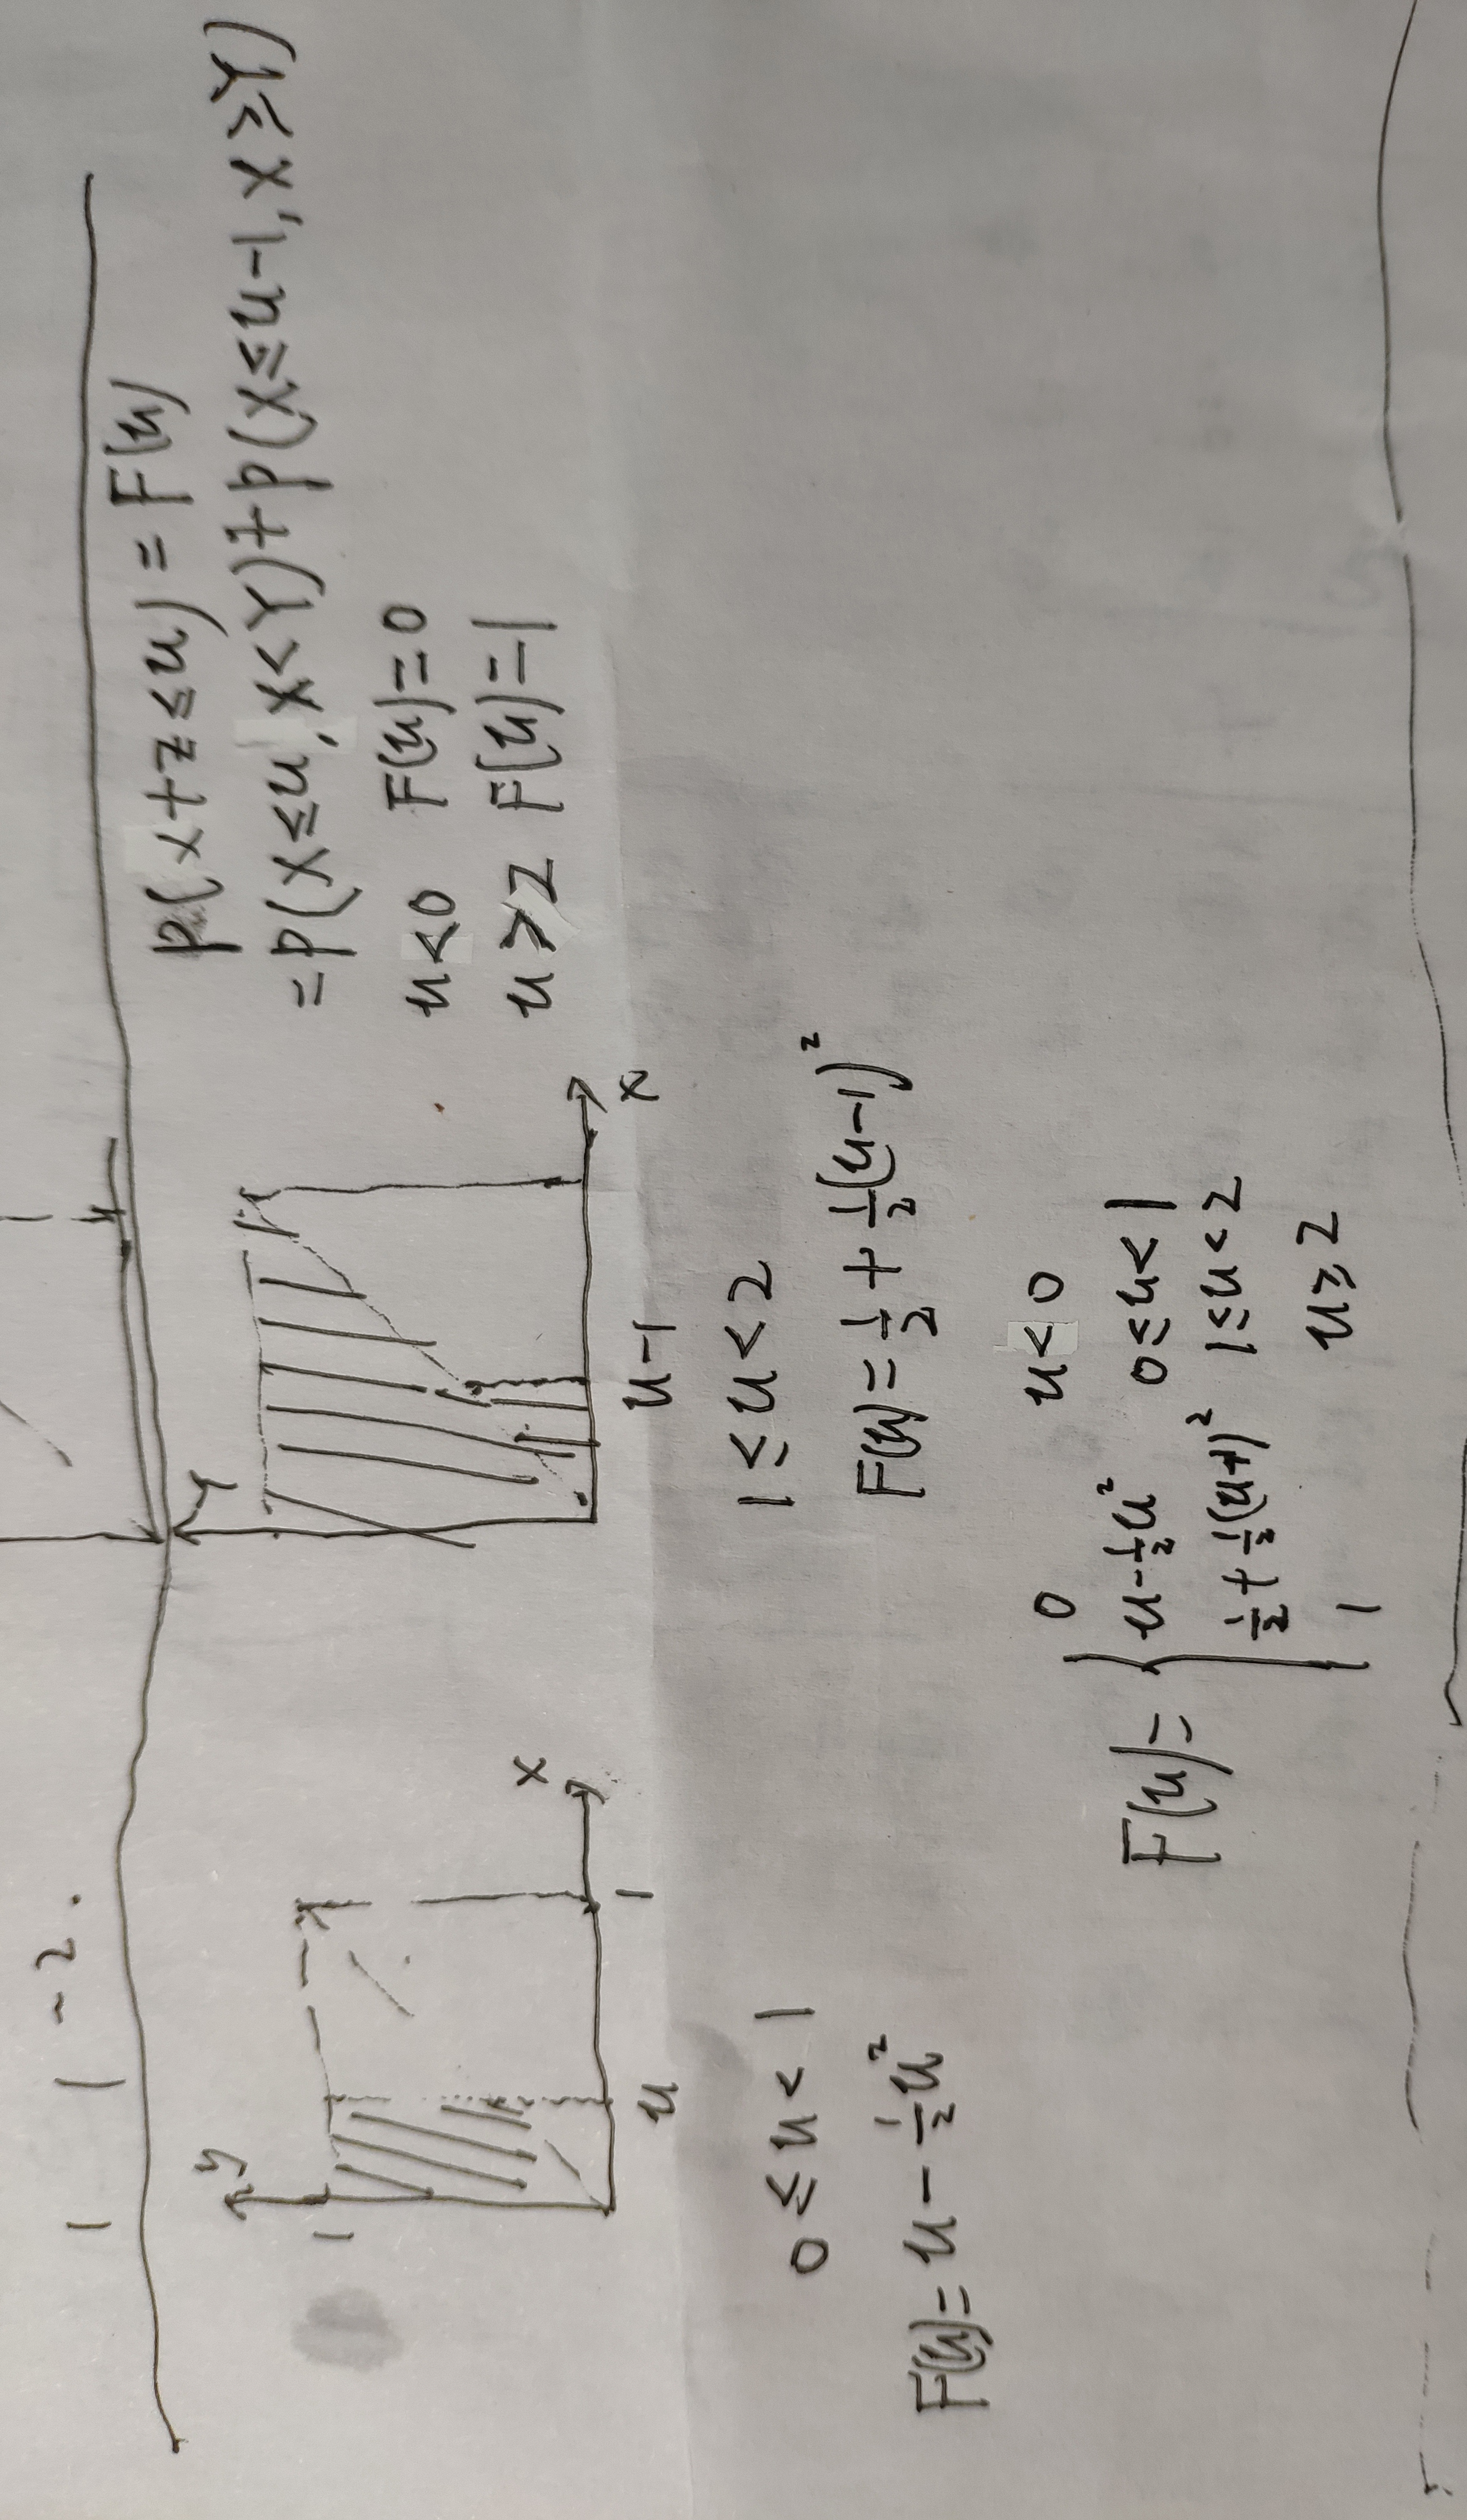 1 1 - 2.
P(x+z≤u)=F(u)
=P(X≤u,X<Y)+P(X≤u-1,X≥Y)
u<0 F(u)=0
u≥2 F(u)=1
y
1
u
1
x
Y
u-1
x
0≤u<1
F(u)=u-½u²
1≤u<2
F(u)=½+½(u-1)²
F(u)=
0 u<0
u-½u² 0≤u<1
½+½(u+1)² 1≤u<2
1 u≥2